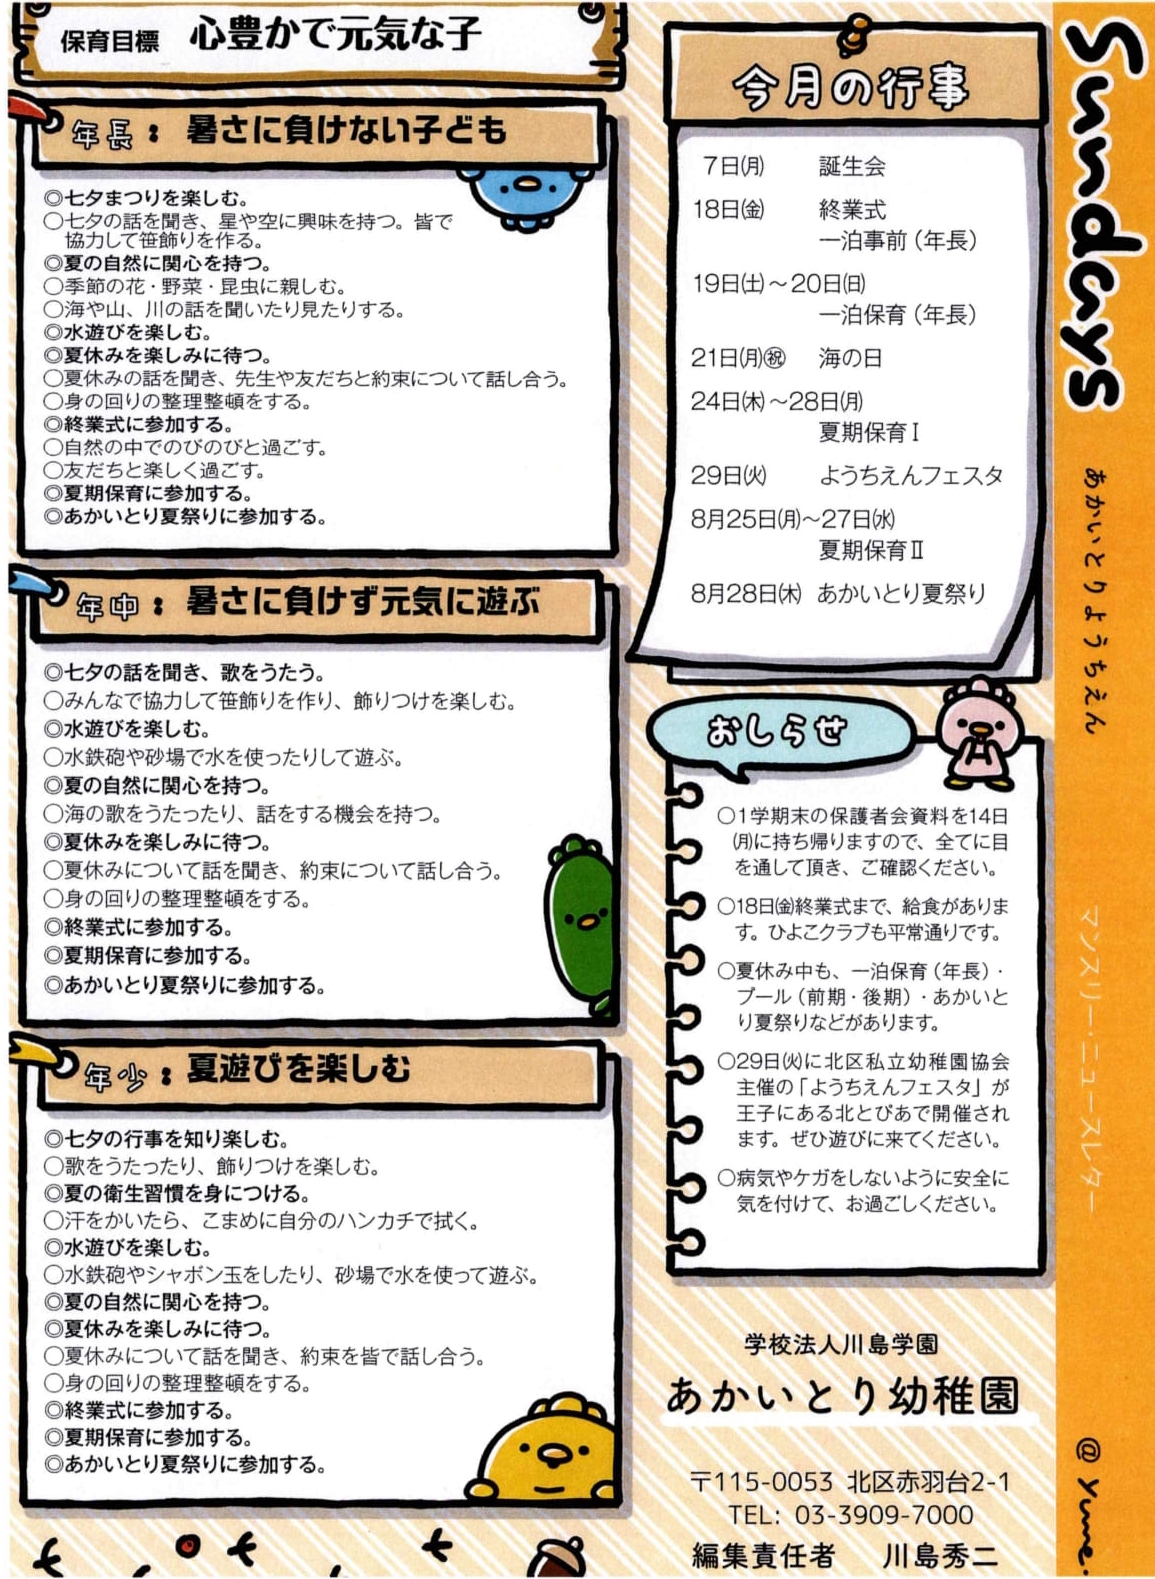 保育目標 心豊かで元気な子
年長： 暑さに負けない子ども
◎七夕まつりを楽しむ。
○七夕の話を聞き、星や空に興味を持つ。皆で
協力して笹飾りを作る。
◎夏の自然に関心を持つ。
○季節の花・野菜・昆虫に親しむ。
○海や山、川の話を聞いたり見たりする。
◎水遊びを楽しむ。
◎夏休みを楽しみに待つ。
○夏休みの話を聞き、先生や友だちと約束について話し合う。
○身の回りの整理整頓をする。
◎終業式に参加する。
○自然の中でのびのびと過ごす。
○友だちと楽しく過ごす。
◎夏期保育に参加する。
◎あかいとり夏祭りに参加する。
年中： 暑さに負けず元気に遊ぶ
◎七夕の話を聞き、歌をうたう。
○みんなで協力して笹飾りを作り、飾りつけを楽しむ。
◎水遊びを楽しむ。
○水鉄砲や砂場で水を使ったりして遊ぶ。
◎夏の自然に関心を持つ。
○海の歌をうたったり、話をする機会を持つ。
◎夏休みを楽しみに待つ。
○夏休みについて話を聞き、約束について話し合う。
○身の回りの整理整頓をする。
◎終業式に参加する。
◎夏期保育に参加する。
◎あかいとり夏祭りに参加する。
年少： 夏遊びを楽しむ
◎七夕の行事を知り楽しむ。
○歌をうたったり、飾りつけを楽しむ。
◎夏の衛生習慣を身につける。
○汗をかいたら、こまめに自分のハンカチで拭く。
◎水遊びを楽しむ。
○水鉄砲やシャボン玉をしたり、砂場で水を使って遊ぶ。
◎夏の自然に関心を持つ。
◎夏休みを楽しみに待つ。
○夏休みについて話を聞き、約束を皆で話し合う。
○身の回りの整理整頓をする。
◎終業式に参加する。
◎夏期保育に参加する。
◎あかいとり夏祭りに参加する。
今月の行事
7日㈪ 誕生会
18日㈮ 終業式
一泊事前（年長）
19日㈯～20日㈰
一泊保育（年長）
21日㈪㊗ 海の日
24日㈭～28日㈪
夏期保育Ⅰ
29日㈫ ようちえんフェスタ
8月25日㈪～27日㈬
夏期保育Ⅱ
8月28日㈭ あかいとり夏祭り
おしらせ
○1学期末の保護者会資料を14日
㈪に持ち帰りますので、全てに目
を通して頂き、ご確認ください。
○18日㈮終業式まで、給食がありま
す。ひよこクラブも平常通りです。
○夏休み中も、一泊保育（年長）・
プール（前期・後期）・あかいと
り夏祭りなどがあります。
○29日㈫に北区私立幼稚園協会
主催の「ようちえんフェスタ」が
王子にある北とぴあで開催され
ます。ぜひ遊びに来てください。
○病気やケガをしないように安全に
気を付けて、お過ごしください。
学校法人川島学園
あかいとり幼稚園
〒115-0053 北区赤羽台2-1
TEL: 03-3909-7000
編集責任者 川島秀二
Sundays
あかいとりようちえん
マンスリー・ニュースレター
@ yume.